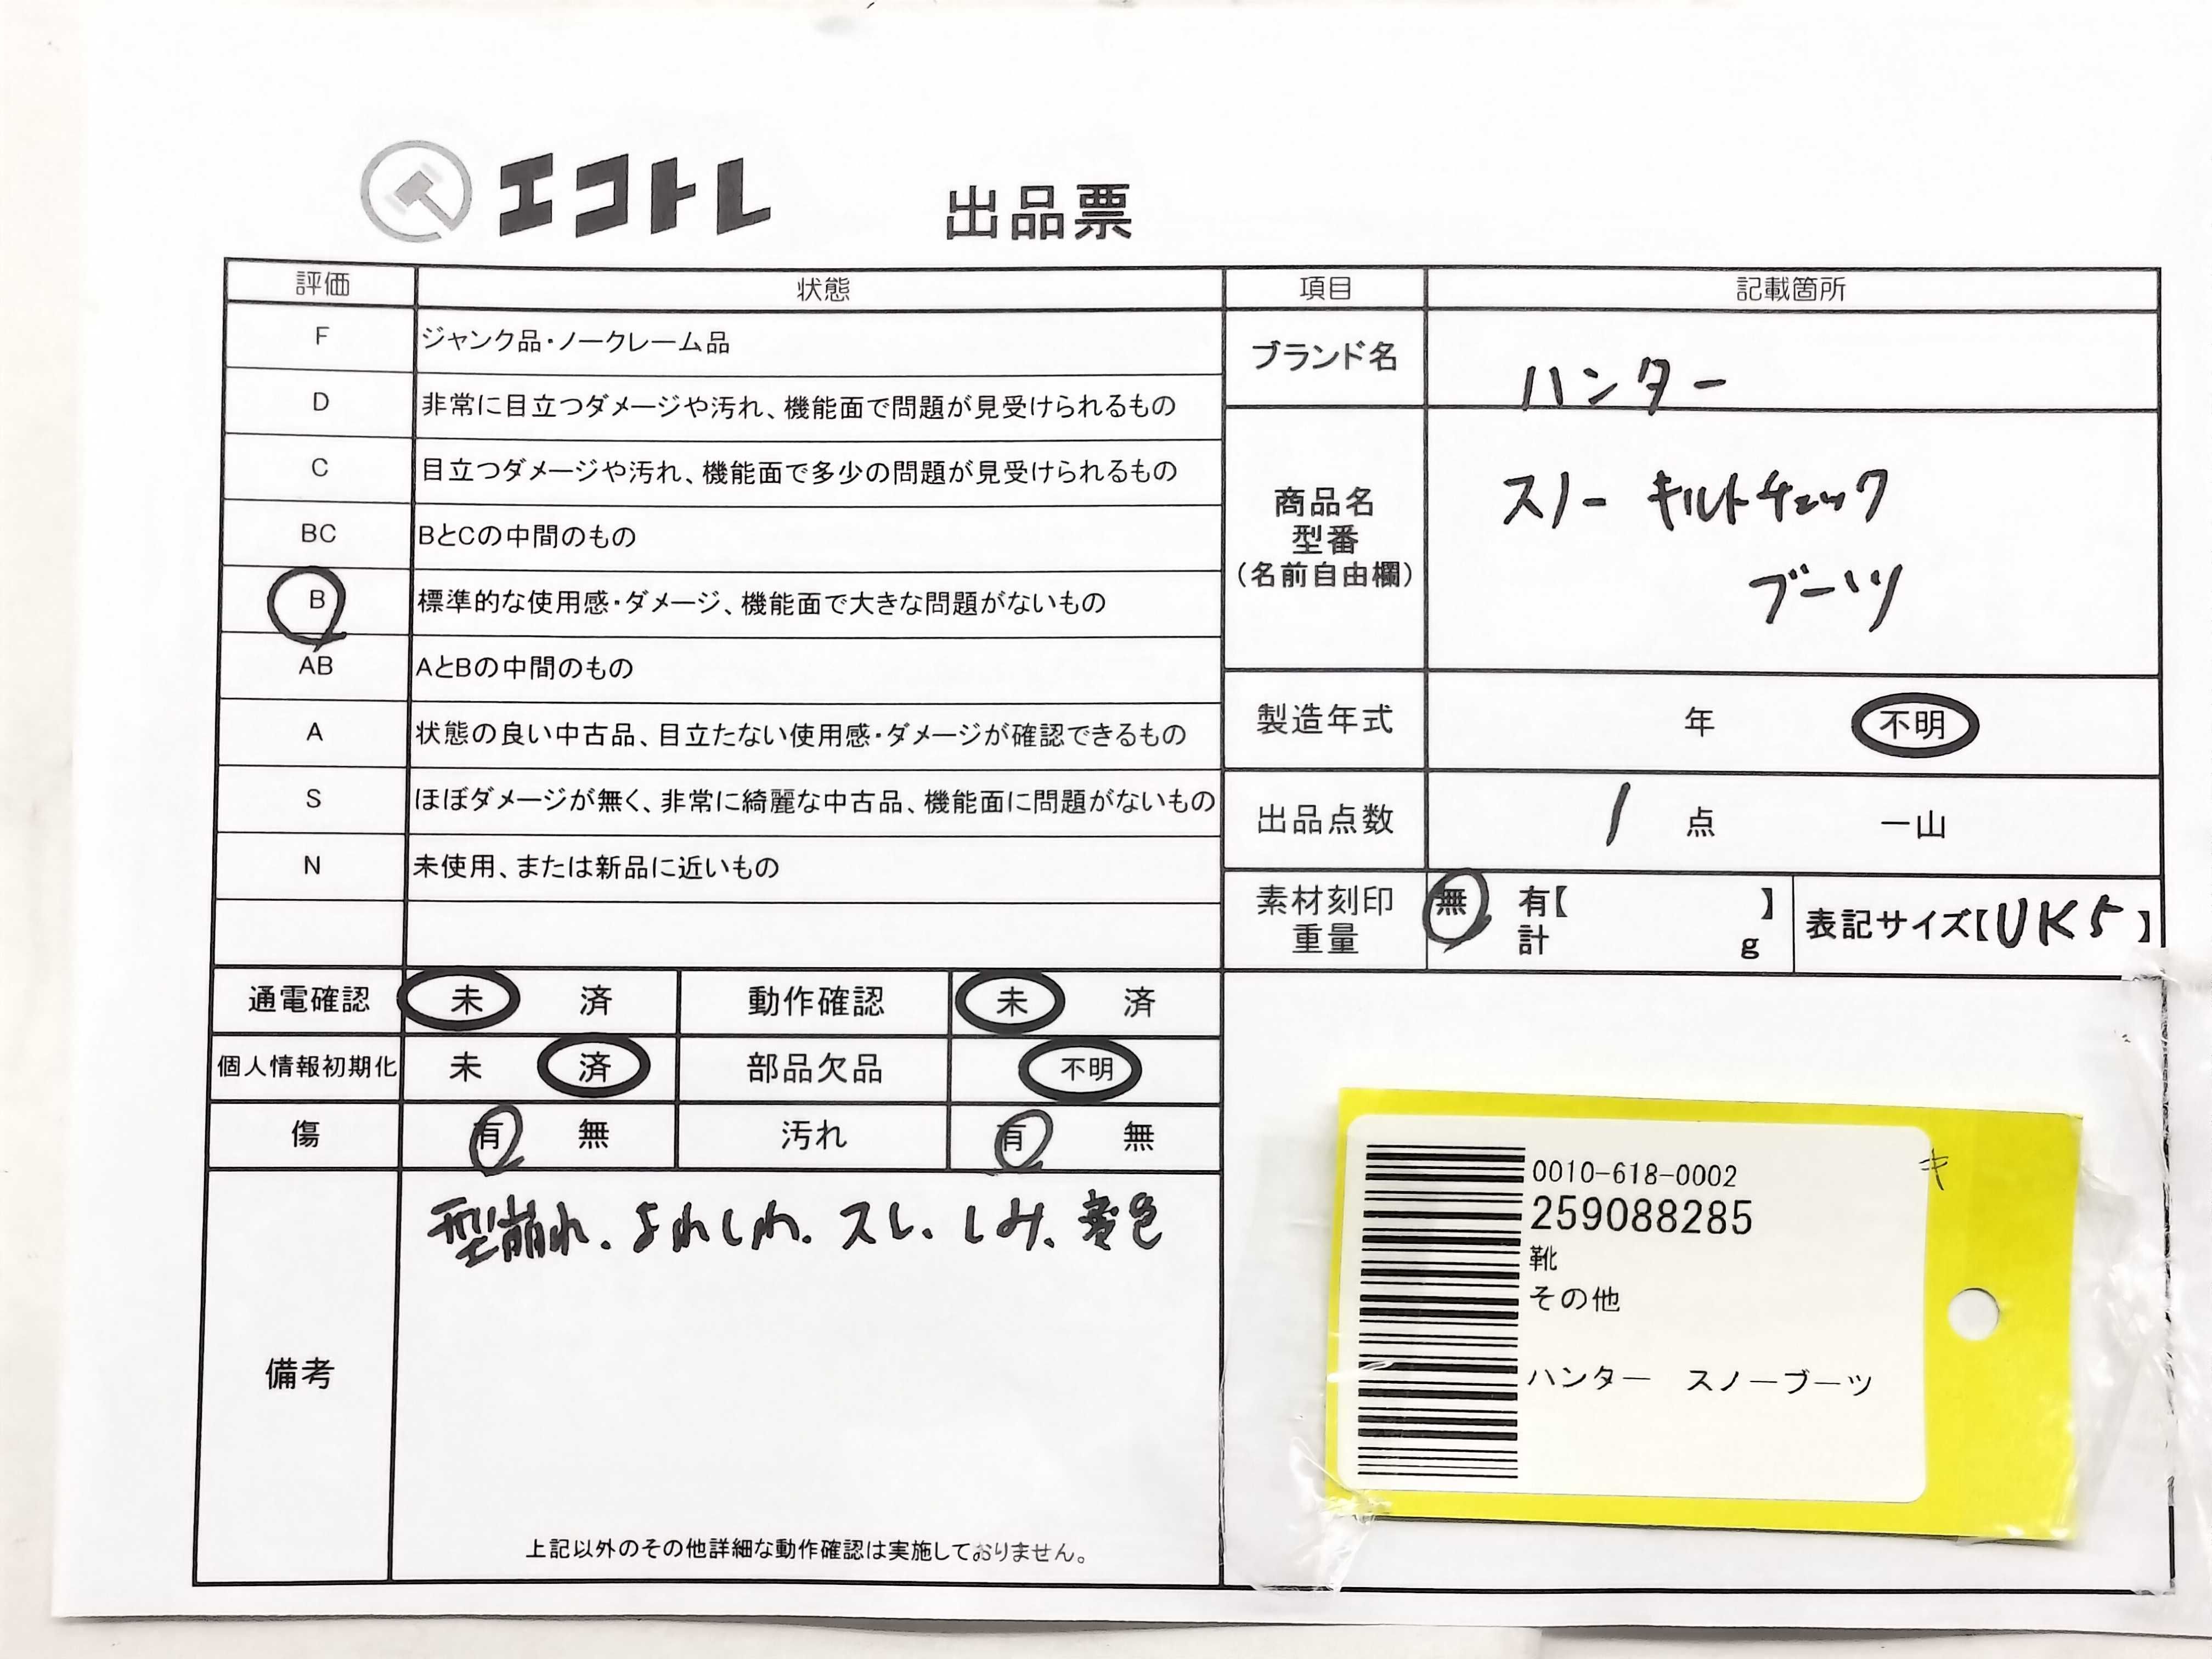 エコトレ 出品票
評価 状態 項目 記載箇所
F ジャンク品・ノークレーム品
D 非常に目立つダメージや汚れ、機能面で問題が見受けられるもの
C 目立つダメージや汚れ、機能面で多少の問題が見受けられるもの
BC BとCの中間のもの
B 標準的な使用感・ダメージ、機能面で大きな問題がないもの
AB AとBの中間のもの
A 状態の良い中古品、目立たない使用感・ダメージが確認できるもの
S ほぼダメージが無く、非常に綺麗な中古品、機能面に問題がないもの
N 未使用、または新品に近いもの
ブランド名 ハンター
商品名
型番
(名前自由欄)
スノー キルトチェック
ブーツ
製造年式 年 不明
出品点数 1 点 一山
素材刻印 無 有【 】
重量 計 g
表記サイズ【UK5】
通電確認 未 済 動作確認 未 済
個人情報初期化 未 済 部品欠品 不明
傷 有 無 汚れ 有 無
備考
型崩れ、よれしわ、スレ、しみ、変色
上記以外のその他詳細な動作確認は実施しておりません。
0010-618-0002
259088285
靴
その他
ハンター スノーブーツ
キ